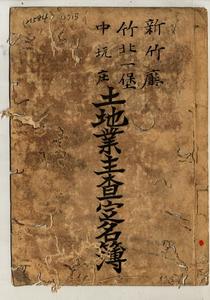 新竹廳
竹北一堡
中坑庄
土地業主查定名簿